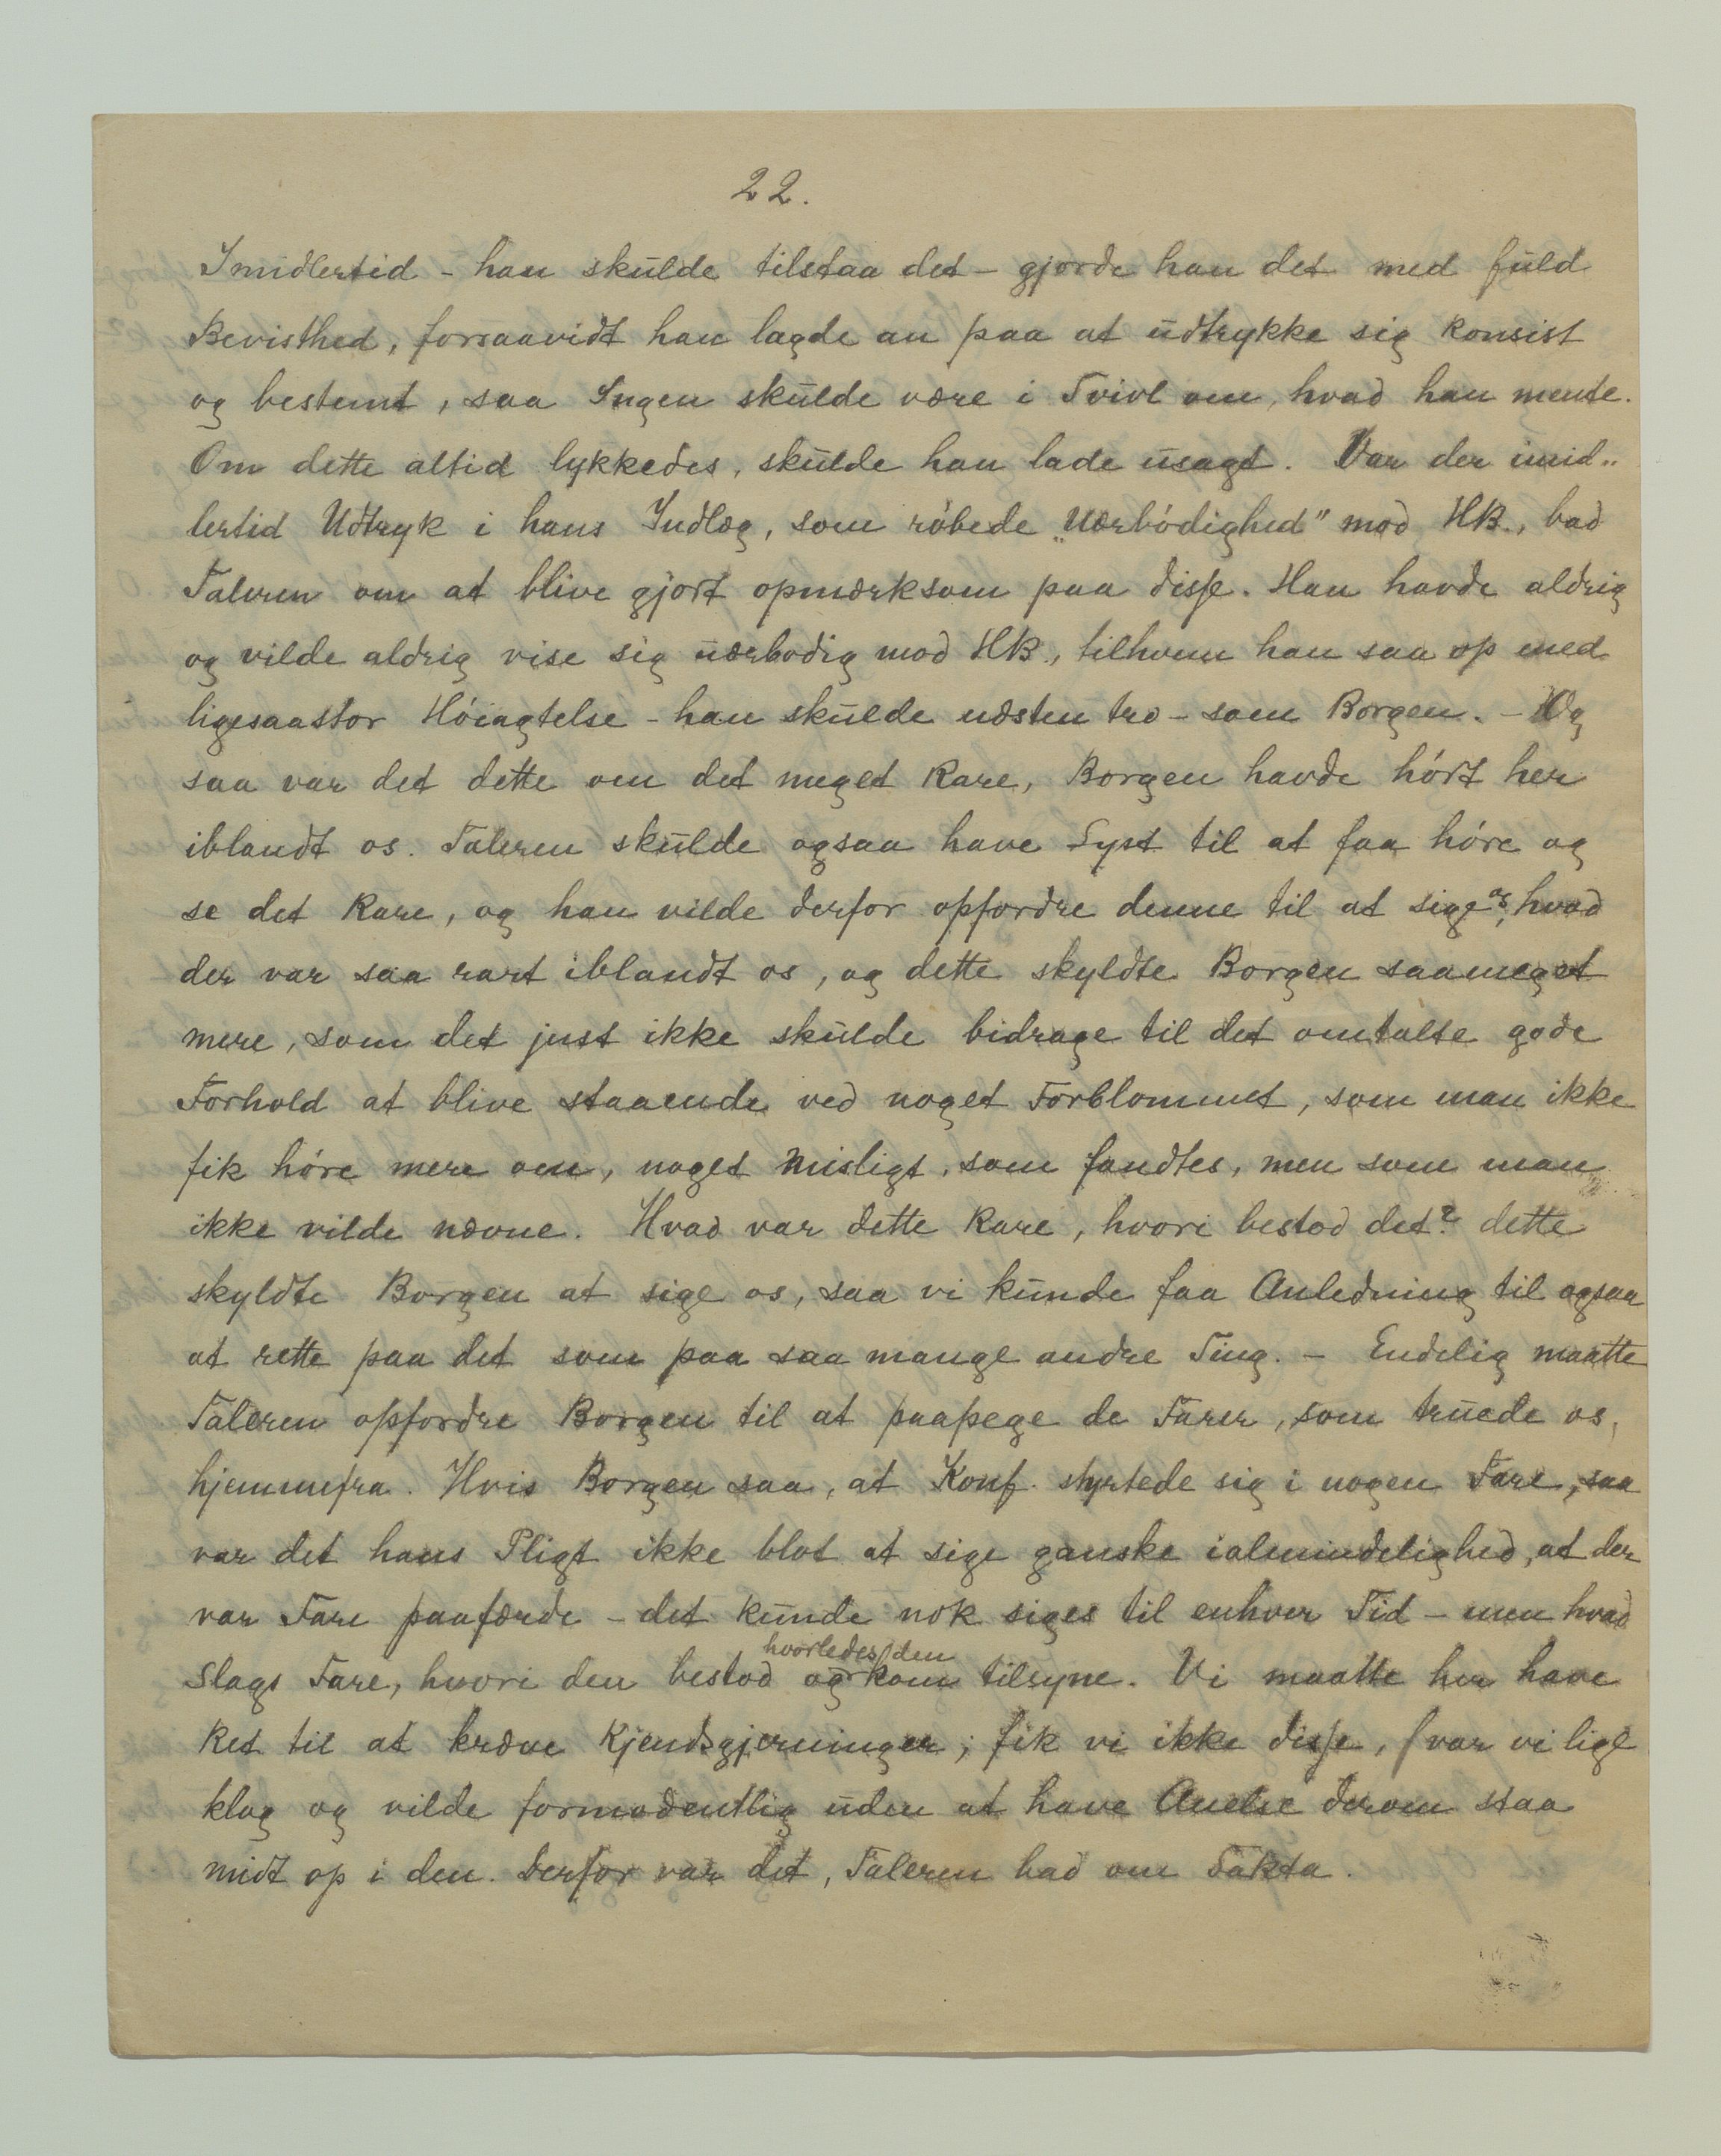 22.
Imidlertid - han skulde tilstaa det - gjorde han det med fuld
Bevisthed, forsaavidt han lagde an paa at udtrykke sig konsist
og bestemt, saa Ingen skulde være i Tvivl om, hvad han mente.
Om dette altid lykkedes, skulde han lade usagt. Var der imid„
lertid Udtryk i hans Indlæg, som røbede „Uærbødighed" mod HB., bad
Taleren om at blive gjort opmærksom paa disse. Han havde aldrig
og vilde aldrig vise sig uærbødig mod HB., tilhvem han saa op med
ligesaastor Høiagtelse - han skulde næsten tro - som Borgen. - Og
saa var det dette om det meget Rare, Borgen havde hørt her
iblandt os. Taleren skulde ogsaa have Lyst til at faa høre og
se det Rare, og han vilde derfor opfordre denne til at sige os, hvad
der var saa rart iblandt os, og dette skyldte Borgen saameget
mere, som det just ikke skulde bidrage til det omtalte gode
Forhold at blive staaende ved noget Forblommet, som man ikke
fik høre mere om, noget Misligt, som fandtes, men som man
ikke vilde nævne. Hvad var dette Rare, hvori bestod det? dette
skyldte Borgen at sige os, saa vi kunde faa Anledning til ogsaa
at rette paa det som paa saa mange andre Ting. - Endelig maatte
Taleren opfordre Borgen til at paapege de Farer, som truede os,
hjemmefra. Hvis Borgen saa, at Konf. styrtede sig i nogen Fare, saa
var det hans Pligt ikke blot at sige ganske ialmindelighed, at der
var Fare paafærde - det kunde nok siges til enhver Tid - men hvad
Slags Fare, hvori den bestod og hvorledes den kom tilsyne. Vi maatte her have
Ret til at kræve Kjendsgjerninger; fik vi ikke disse, var vi lige
klog og vilde formodentlig uden at have Anelse derom staa
midt op i den. Derfor var det, Taleren bad om Fakta.